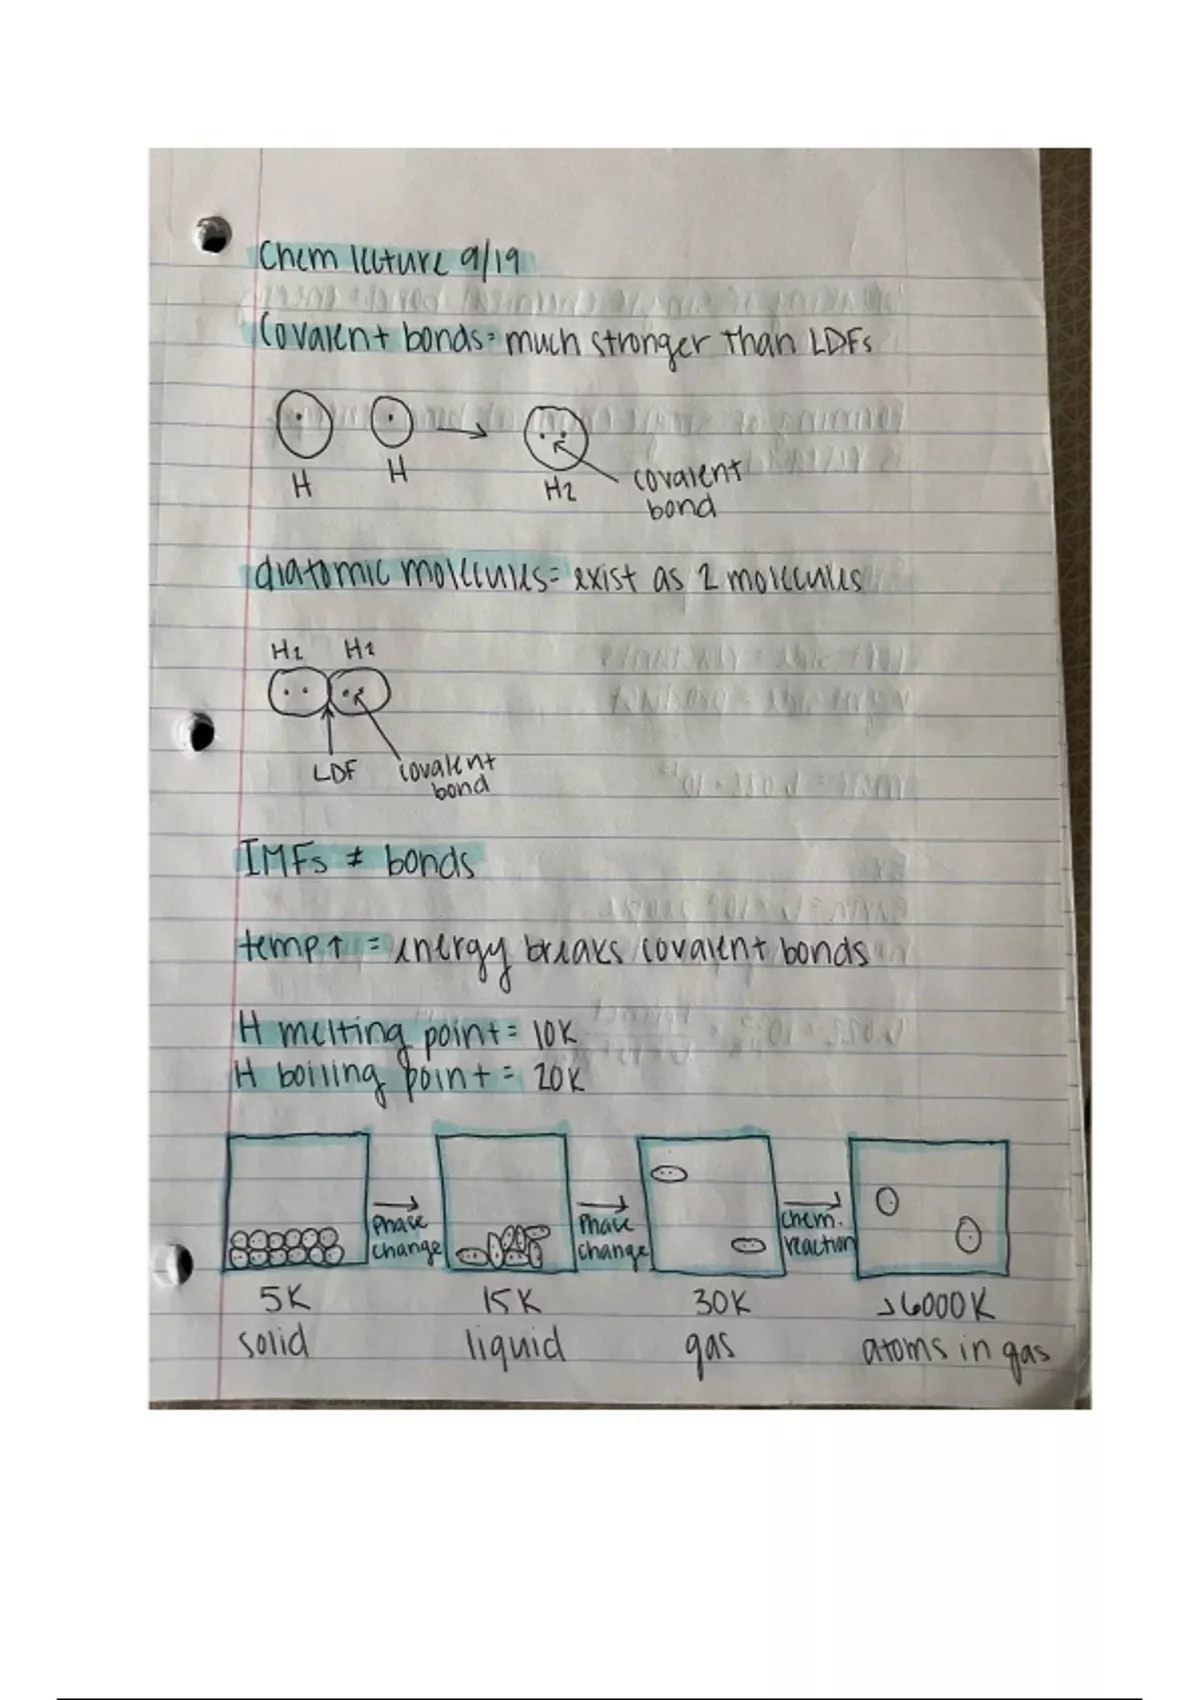 Chem lecture 9/19
Covalent bonds= much stronger than LDFs
H H → H2 covalent
bond
diatomic molecules= exist as 2 molecules
H2 H2
LDF covalent
bond
IMFs ≠ bonds
temp↑ = energy breaks covalent bonds
H melting point= 10K
H boiling point= 20K
→ → →
Phase change Phase change chem. reaction
5K 15K 30K >6000K
solid liquid gas atoms in gas